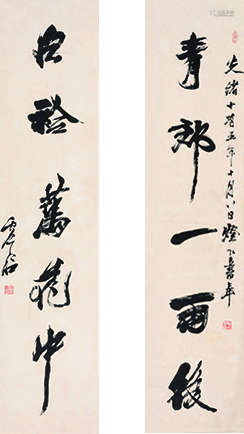 青郊一雨後
光緒十有五年十月八日燈下書奉
白袷萬花中